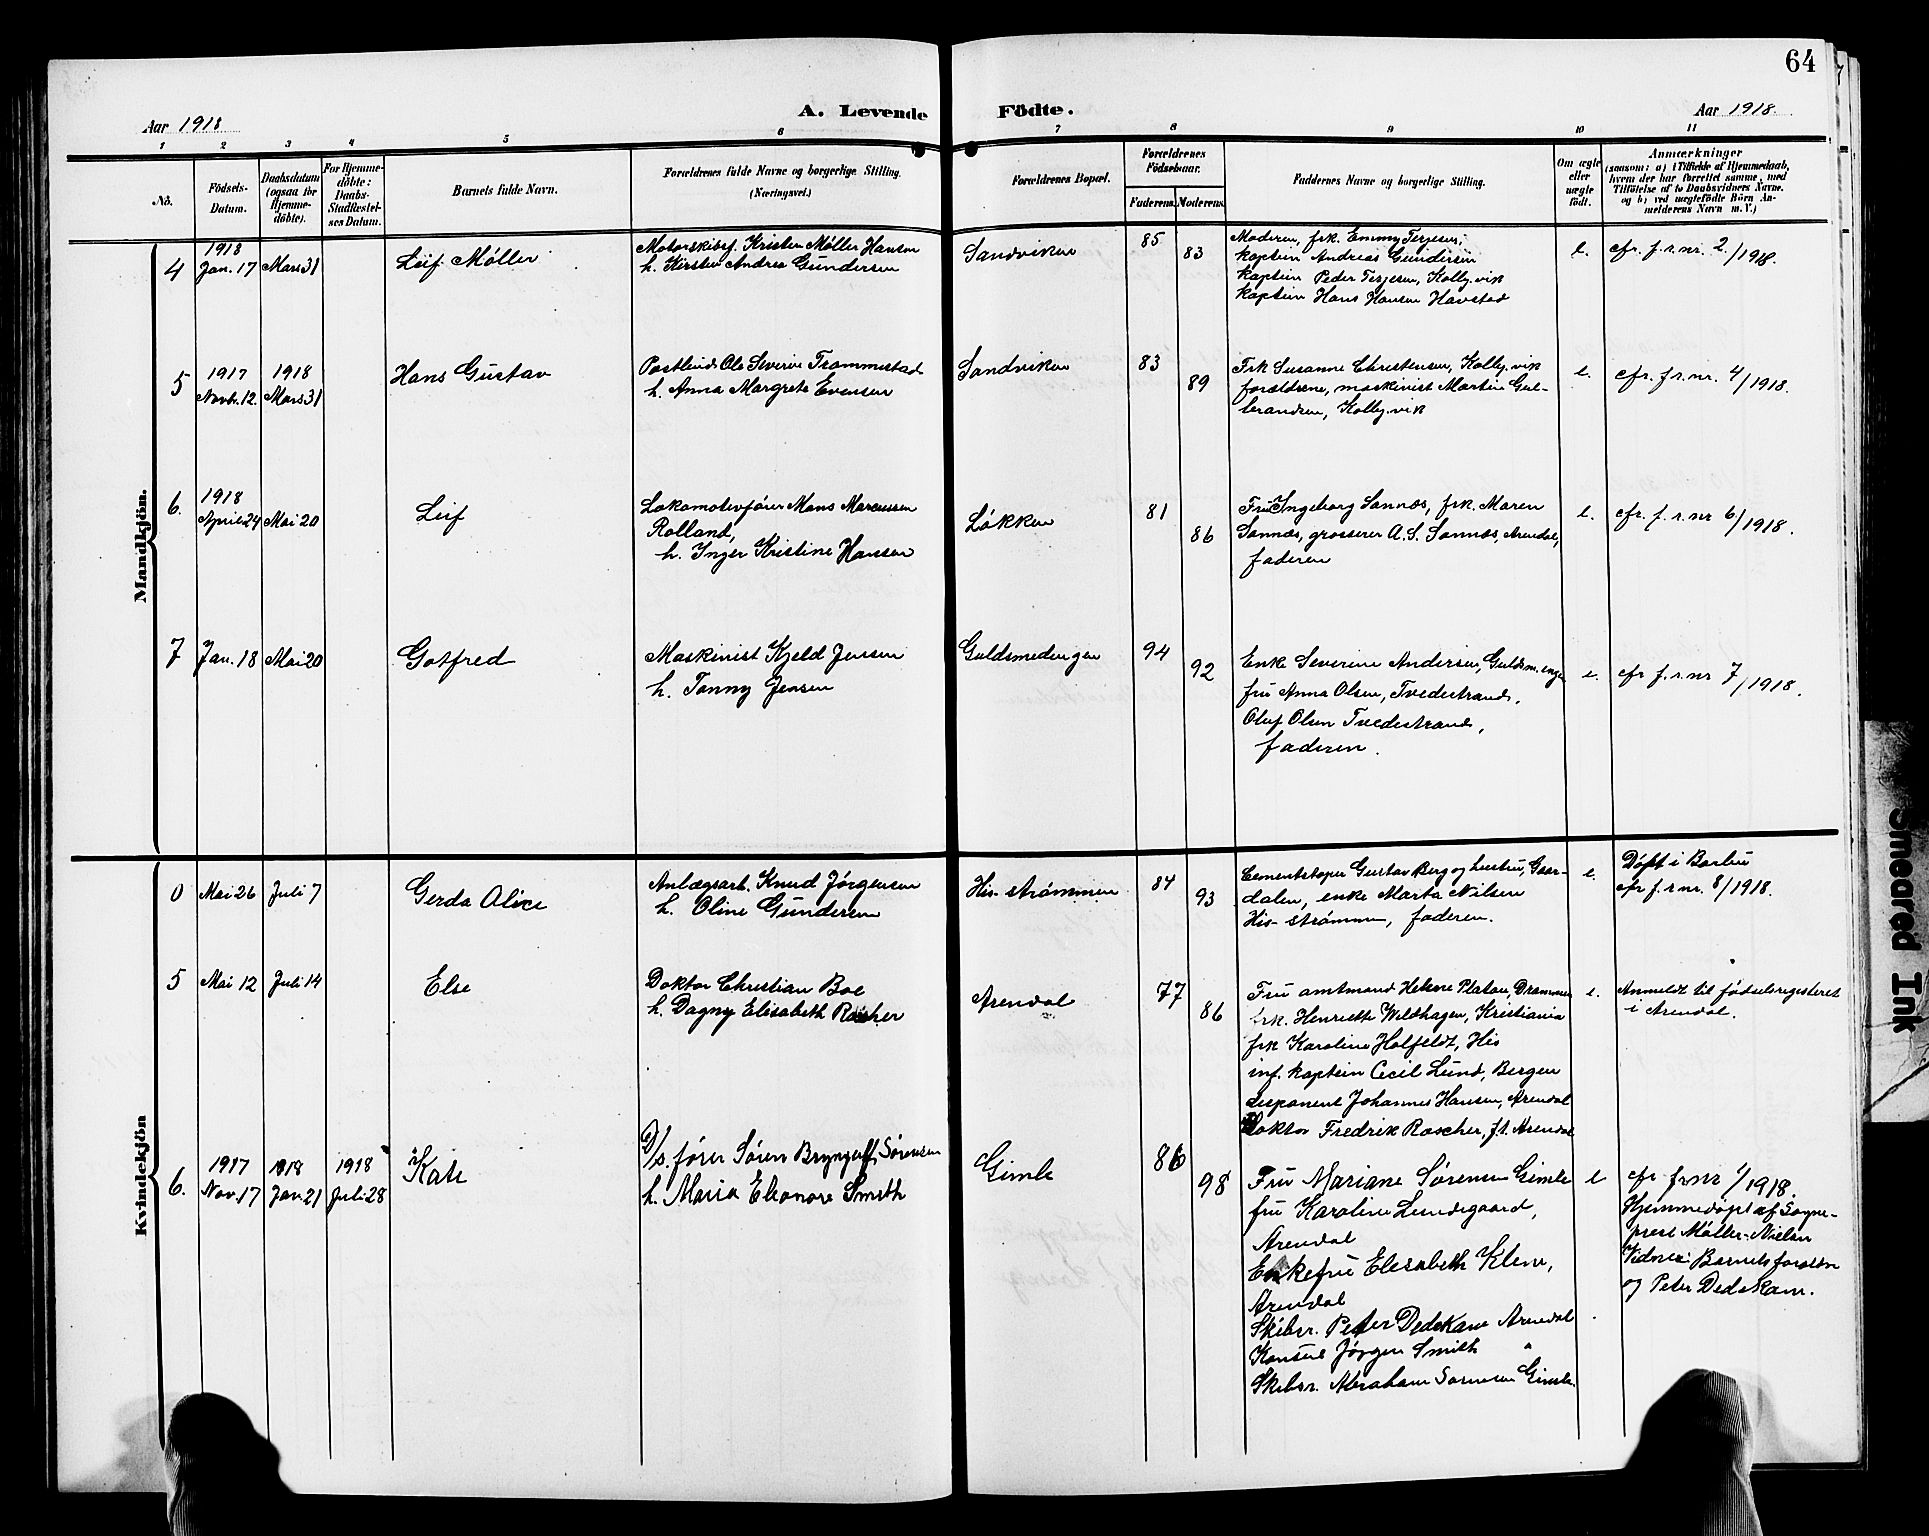 64
A. Levende Födte.
Aar 1918
Aar 1918.
1 2 3 4 5 6 7 8 9 10 11
No.
Födsels-
Datum.
Daabsdatum
(ogsaa for
Hjemme-
döbte).
For Hjemme-
döbte:
Daabs-
Stadfestel-
ses Datum.
Barnets fulde Navn.
Forældrenes fulde Navne og borgerlige Stilling.
(Næringsvei.)
Forældrenes Bopæl.
Forældrenes
Födselsaar.
Faderens.
Moderens.
Faddernes Navne og borgerlige Stilling.
Om ægte
eller
uægte
födt.
Anmærkninger
(saasom: a) i Tilfælde af Hjemmedaab,
hvem der har forrettet samme, med
Tilföielse af to Daabsvidners Navne.
og b) ved uægtefödte Börn An-
melderens Navn m. V.)
Mandkjön.
4
1918
Jan. 17
Mars 31
Leif Møller
Motorskibsf. Kristen Møller Hansen
h. Kirsten Andrea Gundersen
Sandviken
85
83
Moderen, frk. Emmy Terjesen,
kaptein Andreas Gundersen
kaptein Peder Terjesen, Kolbj.vik
kaptein Hans Hansen Havstad
e.
cfr. f.r.nr. 2/1918.
5
1917
Novbr. 12.
1918
Mars 31
Hans Gustav
Postbud Ole Severin Trommestad
h. Anna Margrete Evensen
Sandviken
83
89
Frk Susanne Christensen, Kolbj.vik
forældrene, maskinist Martin Gul-
brandsen, Kolbj.vik
e.
cfr. f.r.nr. 4/1918.
6.
1918
April 24
Mai 20
Leif
Lokomotivfører Mons Marcussen
Rolland,
h. Inger Kristine Hansen
Løkken
81
86
Fru Ingeborg Sannæs, frk. Maren
Sannæs, grosserer A. S. Sannæs, Arendal,
faderen
e.
cfr. f.r.nr 6/1918.
7
Jan. 18
Mai 20
Gotfred
Maskinist Kjeld Jensen
h. Tonny Jensen
Guldsmedengen
94
92
Enke Severine Andersen, Guldsm.engen
fru Anna Olsen, Tvedestrand,
Oluf Olsen Tvedestrand,
faderen.
e.
cfr f.r.nr 7/1918.
Kvindekjön
0
Mai 26
Juli 7
Gerda Alice
Anlægsarb. Knud Jørgensen
h. Oline Gundersen
His-strømmen
84
93
Cementstøper Gustav Berg og hustru, Gaar-
dalen, enke Marta Nilsen
His-strømmen, faderen.
e.
Døpt i Barbu
cfr f.r.nr. 8/1918.
5
Mai 12
Juli 14
Else
Doktor Christian Boe
h. Dagny Elisabeth Roscher
Arendal
77
86
Fru amtmand Helene Platou, Drammen
frk. Henriette Wildhagen, Kristiania
frk Karoline Holfeldt, His
inf. kaptein Cecil Lund, Bergen
disponent Johannes Hansen, Arendal
Doktor Fredrik Roscher, f.t. Arendal
e.
Anmeldt til fødselsregisteret
i Arendal.
6.
1917
Nov. 17
1918
Jan. 21
1918
Juli 28
Kate
D/s. fører Søren Sørensen
h. Maria Eleonore Smith
Gimle
86
98
Fru Mariane Sørensen Gimle
fru Karoline Lundegaard,
Arendal
Enkefru Elisabeth Klem,
Arendal
Skibsr. Peter Dedekam Arendal
Konsul Jørgen Smith "
Skibsr. Abraham Sørensen Gimle.
e
cfr. f.r.nr 1/1918.
Hjemmedøpt af Sogne-
prest Møller-Nielsen
Vidner: Barnets forældre
og Peter Dedekam.
Smeared Ink